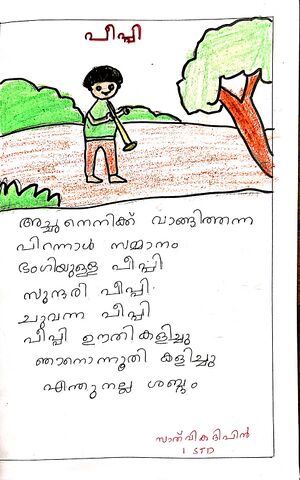 പീപ്പി
അച്ഛനെനിക്ക് വാങ്ങിത്തന്ന
പിറന്നാൾ സമ്മാനം
ഭംഗിയുള്ള പീപ്പി
സുന്ദരി പീപ്പി
ചുവന്ന പീപ്പി
പീപ്പി ഊതികളിച്ചു
ഞാനൊന്നൂതി കളിച്ചു
എന്തുനല്ല ശബ്ദം
സാത്വികദിപിൻ
1 STD